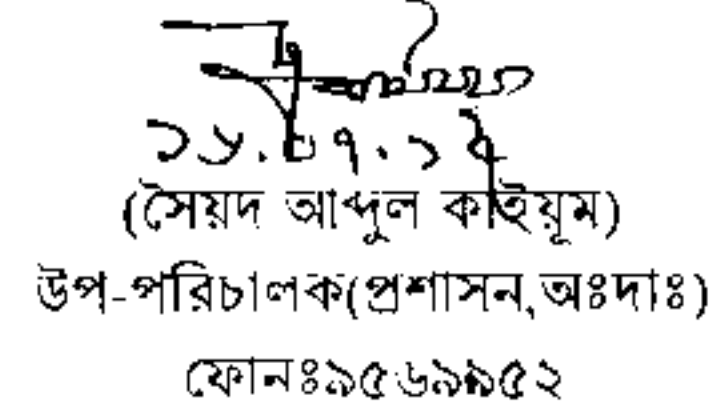 (সৈয়দ আব্দুল কাইয়ূম)
উপ-পরিচালক(প্রশাসন,অঃদাঃ)
ফোনঃ৯৫৬৯৯৫২